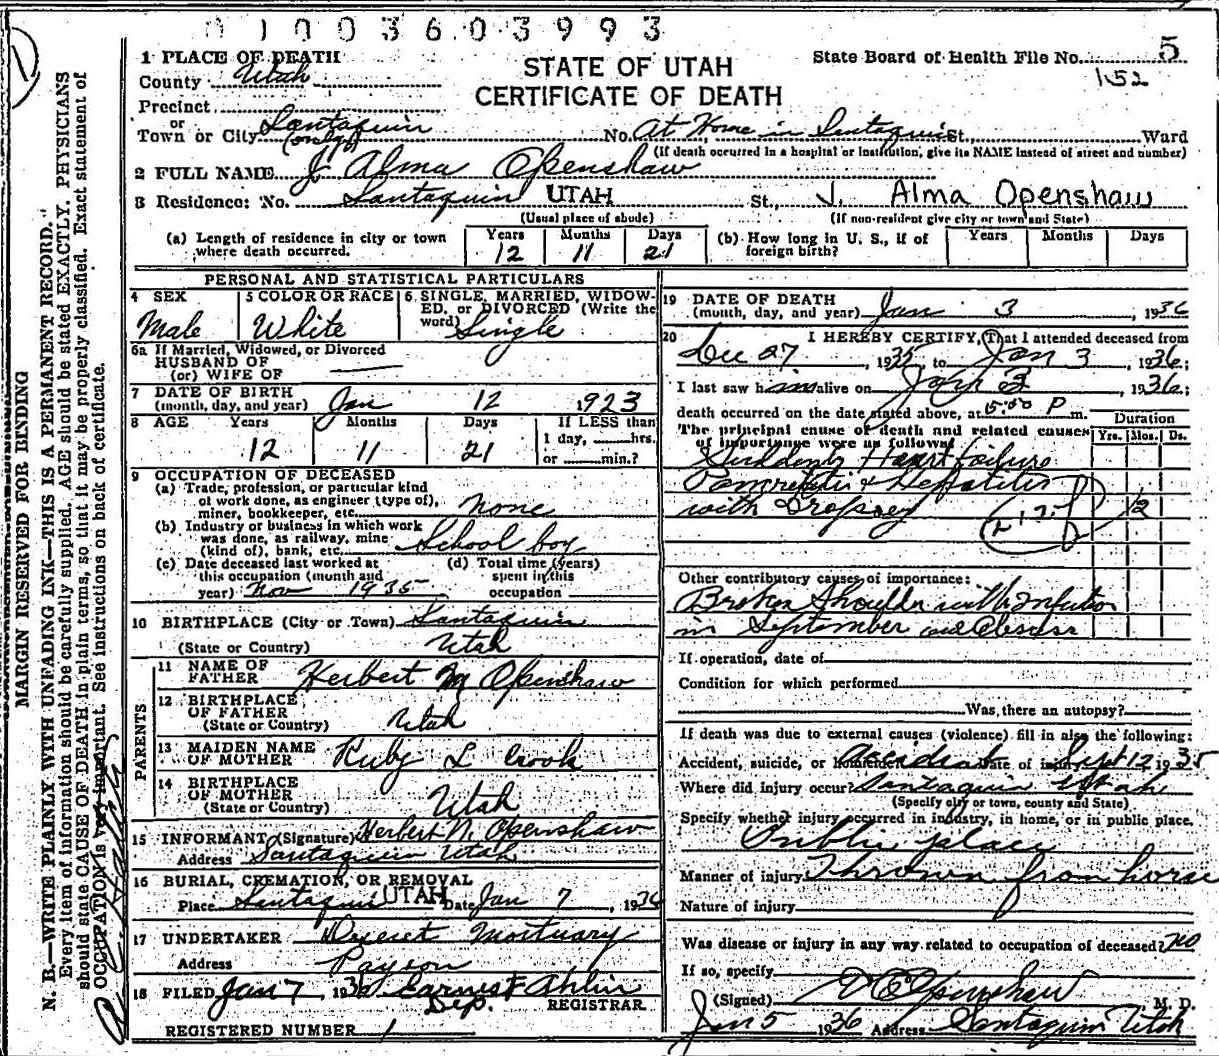 0 1 0 0 3 6 0 3 9 9 3
1 PLACE OF DEATH
County Utah
Precinct
or
Town or City Santaquin
(only)
STATE OF UTAH
CERTIFICATE OF DEATH
State Board of Health File No. 5
152
No. At Home in Santaquin St., Ward
(If death occurred in a hospital or institution, give its NAME instead of street and number)
2 FULL NAME J Alma Openshaw
3 Residence: No. Santaquin UTAH St., J. Alma Openshaw
(Usual place of abode) (If non-resident give city or town and State)
(a) Length of residence in city or town where death occurred. Years 12 Months 11 Days 21
(b) How long in U. S., if of foreign birth? Years Months Days
PERSONAL AND STATISTICAL PARTICULARS
4 SEX
Male
5 COLOR OR RACE
White
6 SINGLE, MARRIED, WIDOW-
ED, or DIVORCED (Write the
word) Single
6a If Married, Widowed, or Divorced
HUSBAND OF
(or) WIFE OF
7 DATE OF BIRTH
(month, day, and year) Jan 12 1923
8 AGE Years Months Days If LESS than
12 11 21 1 day, hrs.
or min.?
9 OCCUPATION OF DECEASED
(a) Trade, profession, or particular kind
of work done, as engineer (type of),
miner, bookkeeper, etc. none
(b) Industry or business in which work
was done, as railway, mine
(kind of), bank, etc. School boy
(c) Date deceased last worked at
this occupation (month and
year) Nov 1935
(d) Total time (years)
spent in this
occupation
10 BIRTHPLACE (City or Town) Santaquin
(State or Country) Utah
PARENTS
11 NAME OF
FATHER Herbert M Openshaw
12 BIRTHPLACE
OF FATHER
(State or Country) Utah
13 MAIDEN NAME
OF MOTHER Ruby L Crook
14 BIRTHPLACE
OF MOTHER
(State or Country) Utah
15 INFORMANT (Signature) Herbert M. Openshaw
Address Santaquin Utah
16 BURIAL, CREMATION, OR REMOVAL
Place Santaquin UTAH Date Jan 7, 1936
17 UNDERTAKER Deseret Mortuary
Address Payson
18 FILED Jan 7 1936 Earnest F Ahlin
Dep. REGISTRAR
REGISTERED NUMBER 1
19 DATE OF DEATH
(month, day, and year) Jan 3, 1936
20 I HEREBY CERTIFY, (That I attended deceased from
Dec 27, 1935, to Jan 3 1936;
I last saw him alive on Jan 3, 1936;
death occurred on the date stated above, at 5:50 P m.
The principal cause of death and related causes
of importance were as follows:
Duration
Yrs. Mos. Ds.
Suddenly Heart failure
Pancreatitis & Hepatitis
with Dropsey
Other contributory causes of importance:
Broken Shoulder with Infection
in September and Abscess
If operation, date of
Condition for which performed
Was there an autopsy?
If death was due to external causes (violence) fill in also the following:
Accident, suicide, or homicide? Accident Date of injury Sept 12 1935
Where did injury occur? Santaquin Utah
(Specify city or town, county and State)
Specify whether injury occurred in industry, in home, or in public place.
Public place
Manner of injury Thrown from horse
Nature of injury
Was disease or injury in any way related to occupation of deceased? no
If so, specify
(Signed) Openshaw M. D.
Jan 5 1936 Address Santaquin Utah
MARGIN RESERVED FOR BINDING
N. B.—WRITE PLAINLY WITH UNFADING INK—THIS IS A PERMANENT RECORD.
Every item of information should be carefully supplied. AGE should be stated EXACTLY. PHYSICIANS
should state CAUSE OF DEATH in plain terms, so that it may be properly classified. Exact statement of
OCCUPATION is very important. See instructions on back of certificate.